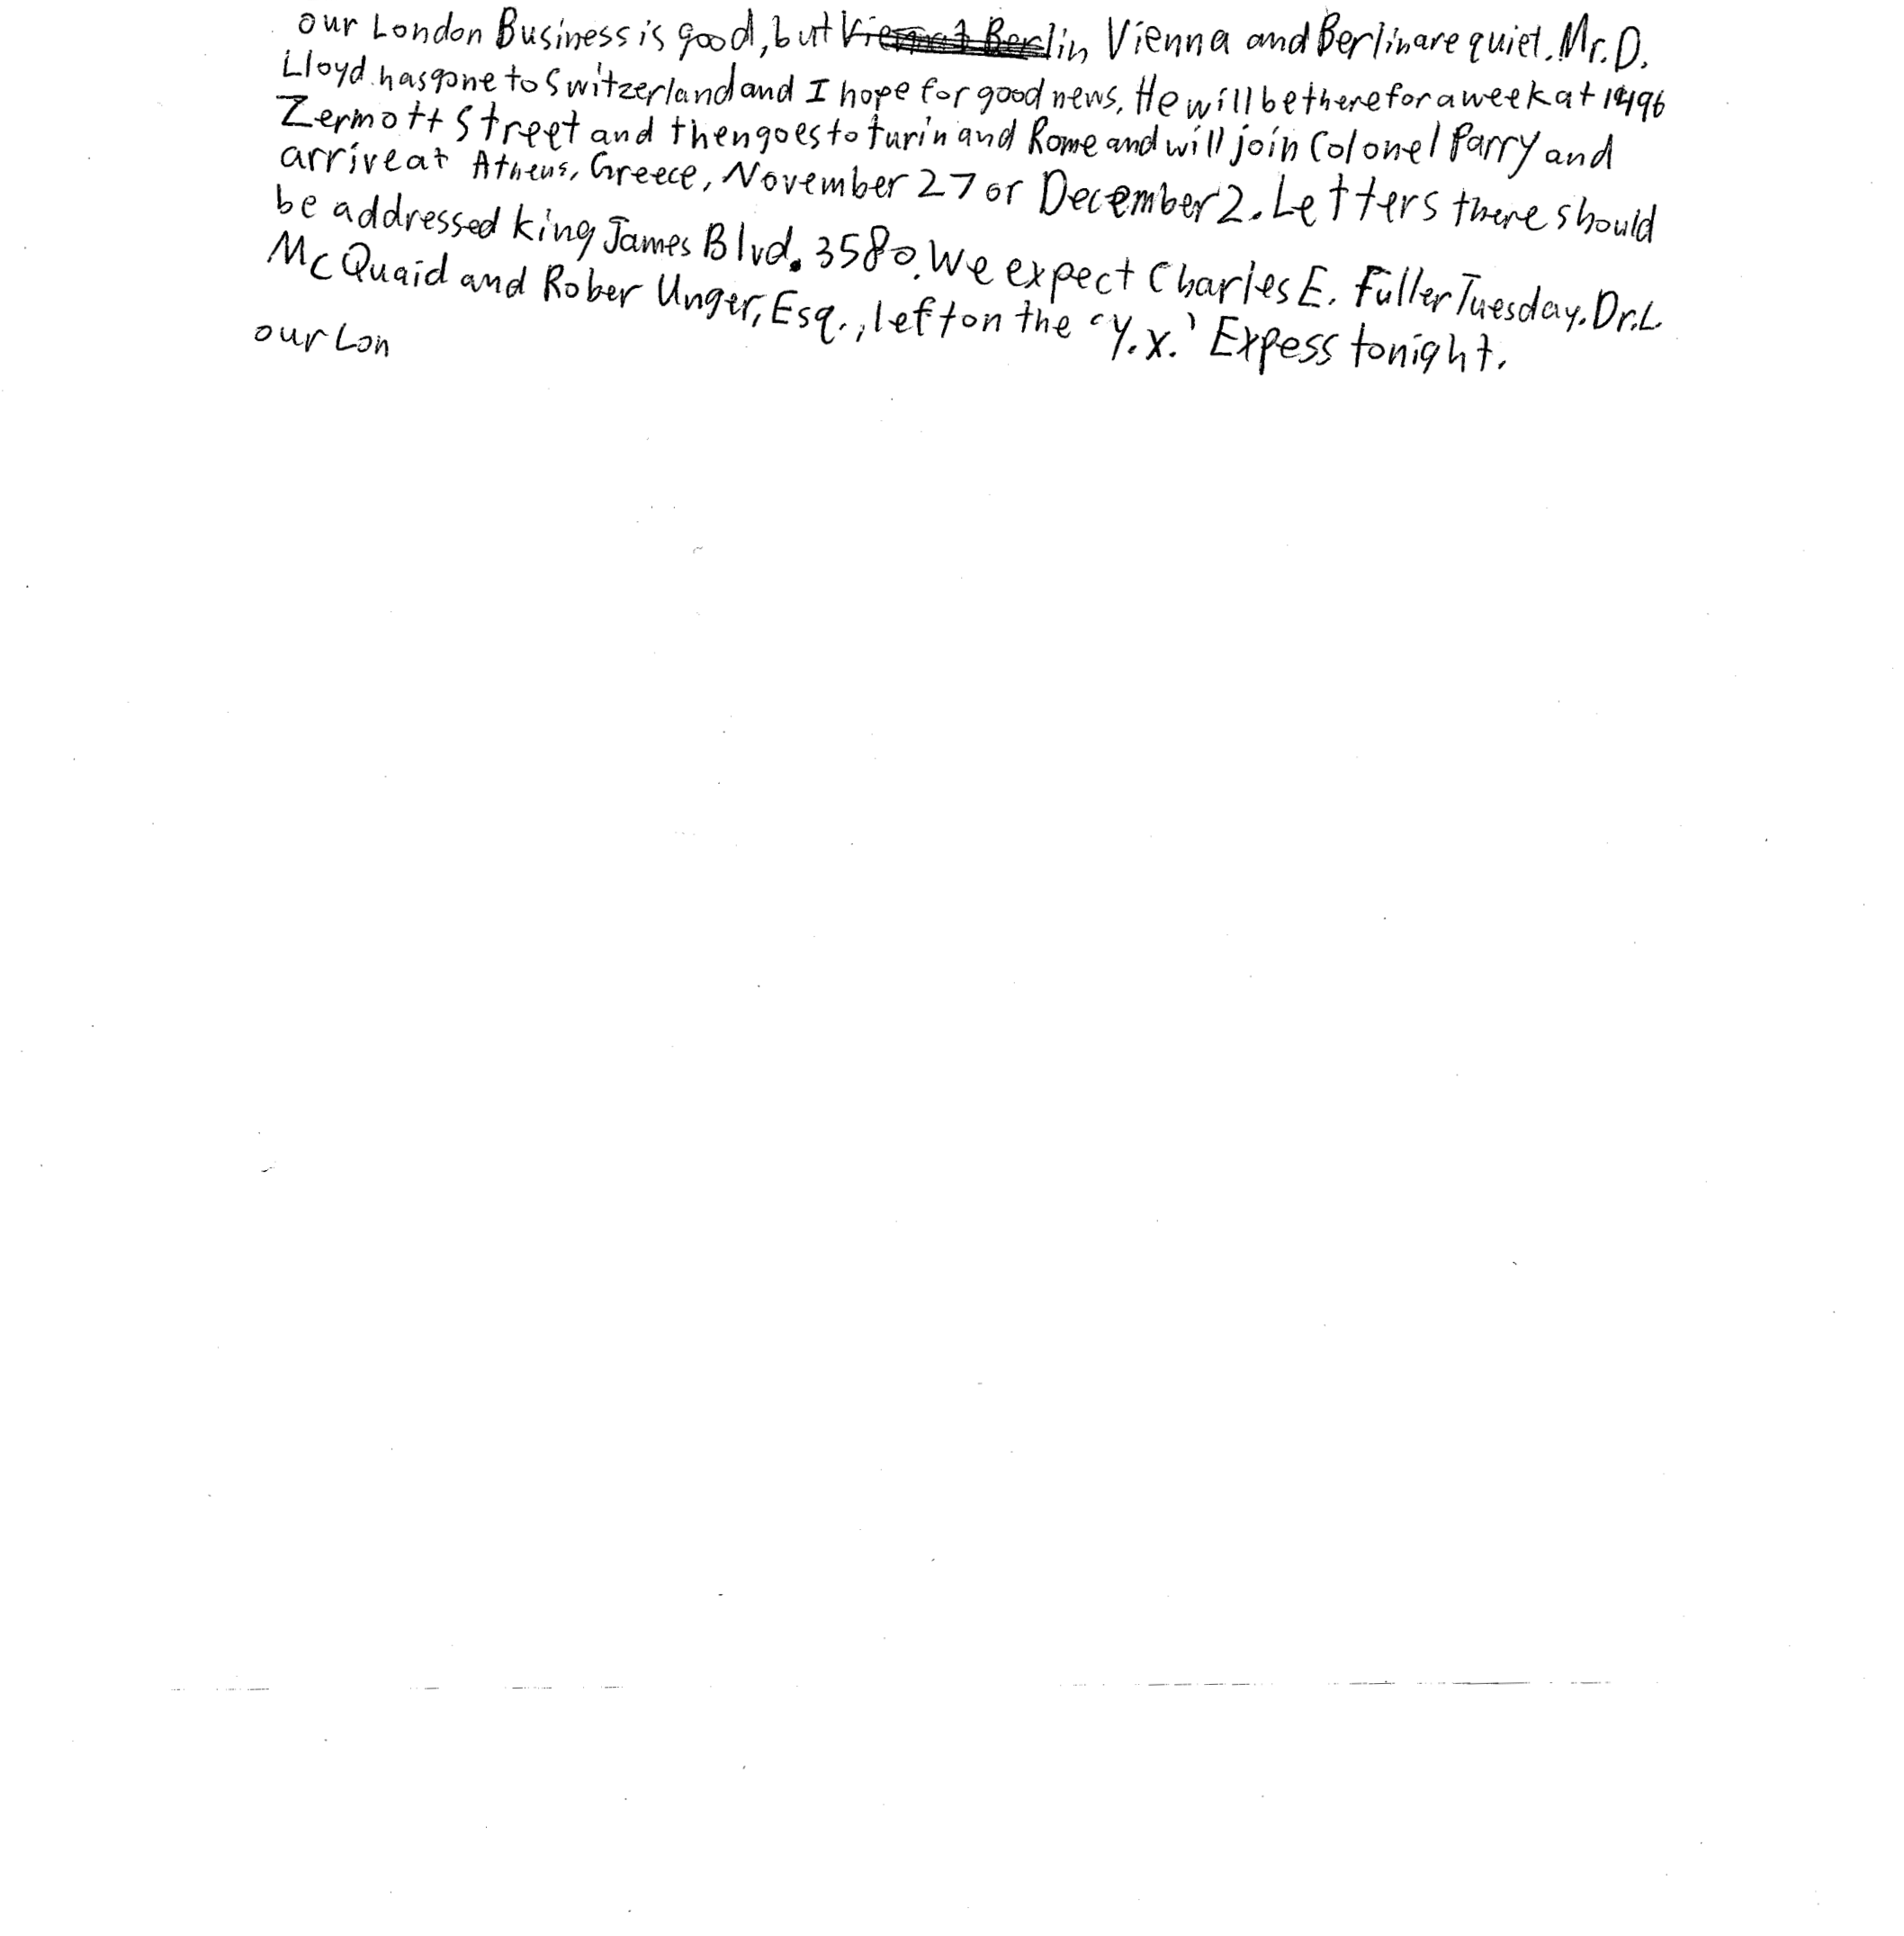 our London Business is good, but Vienna and Berlin are quiet. Mr. D.
Lloyd has gone to Switzerland and I hope for good news. He will be there for a week at 1496
Zermott Street and then goes to turin and Rome and will join Colonel Parry and
arrive at Athens, Greece, November 27 or December 2. Letters there should
be addressed king James Blvd. 3580. We expect Charles E. Fuller Tuesday. Dr. L.
McQuaid and Rober Unger, Esq., left on the 'Y.X.' Expess tonight.
our Lon